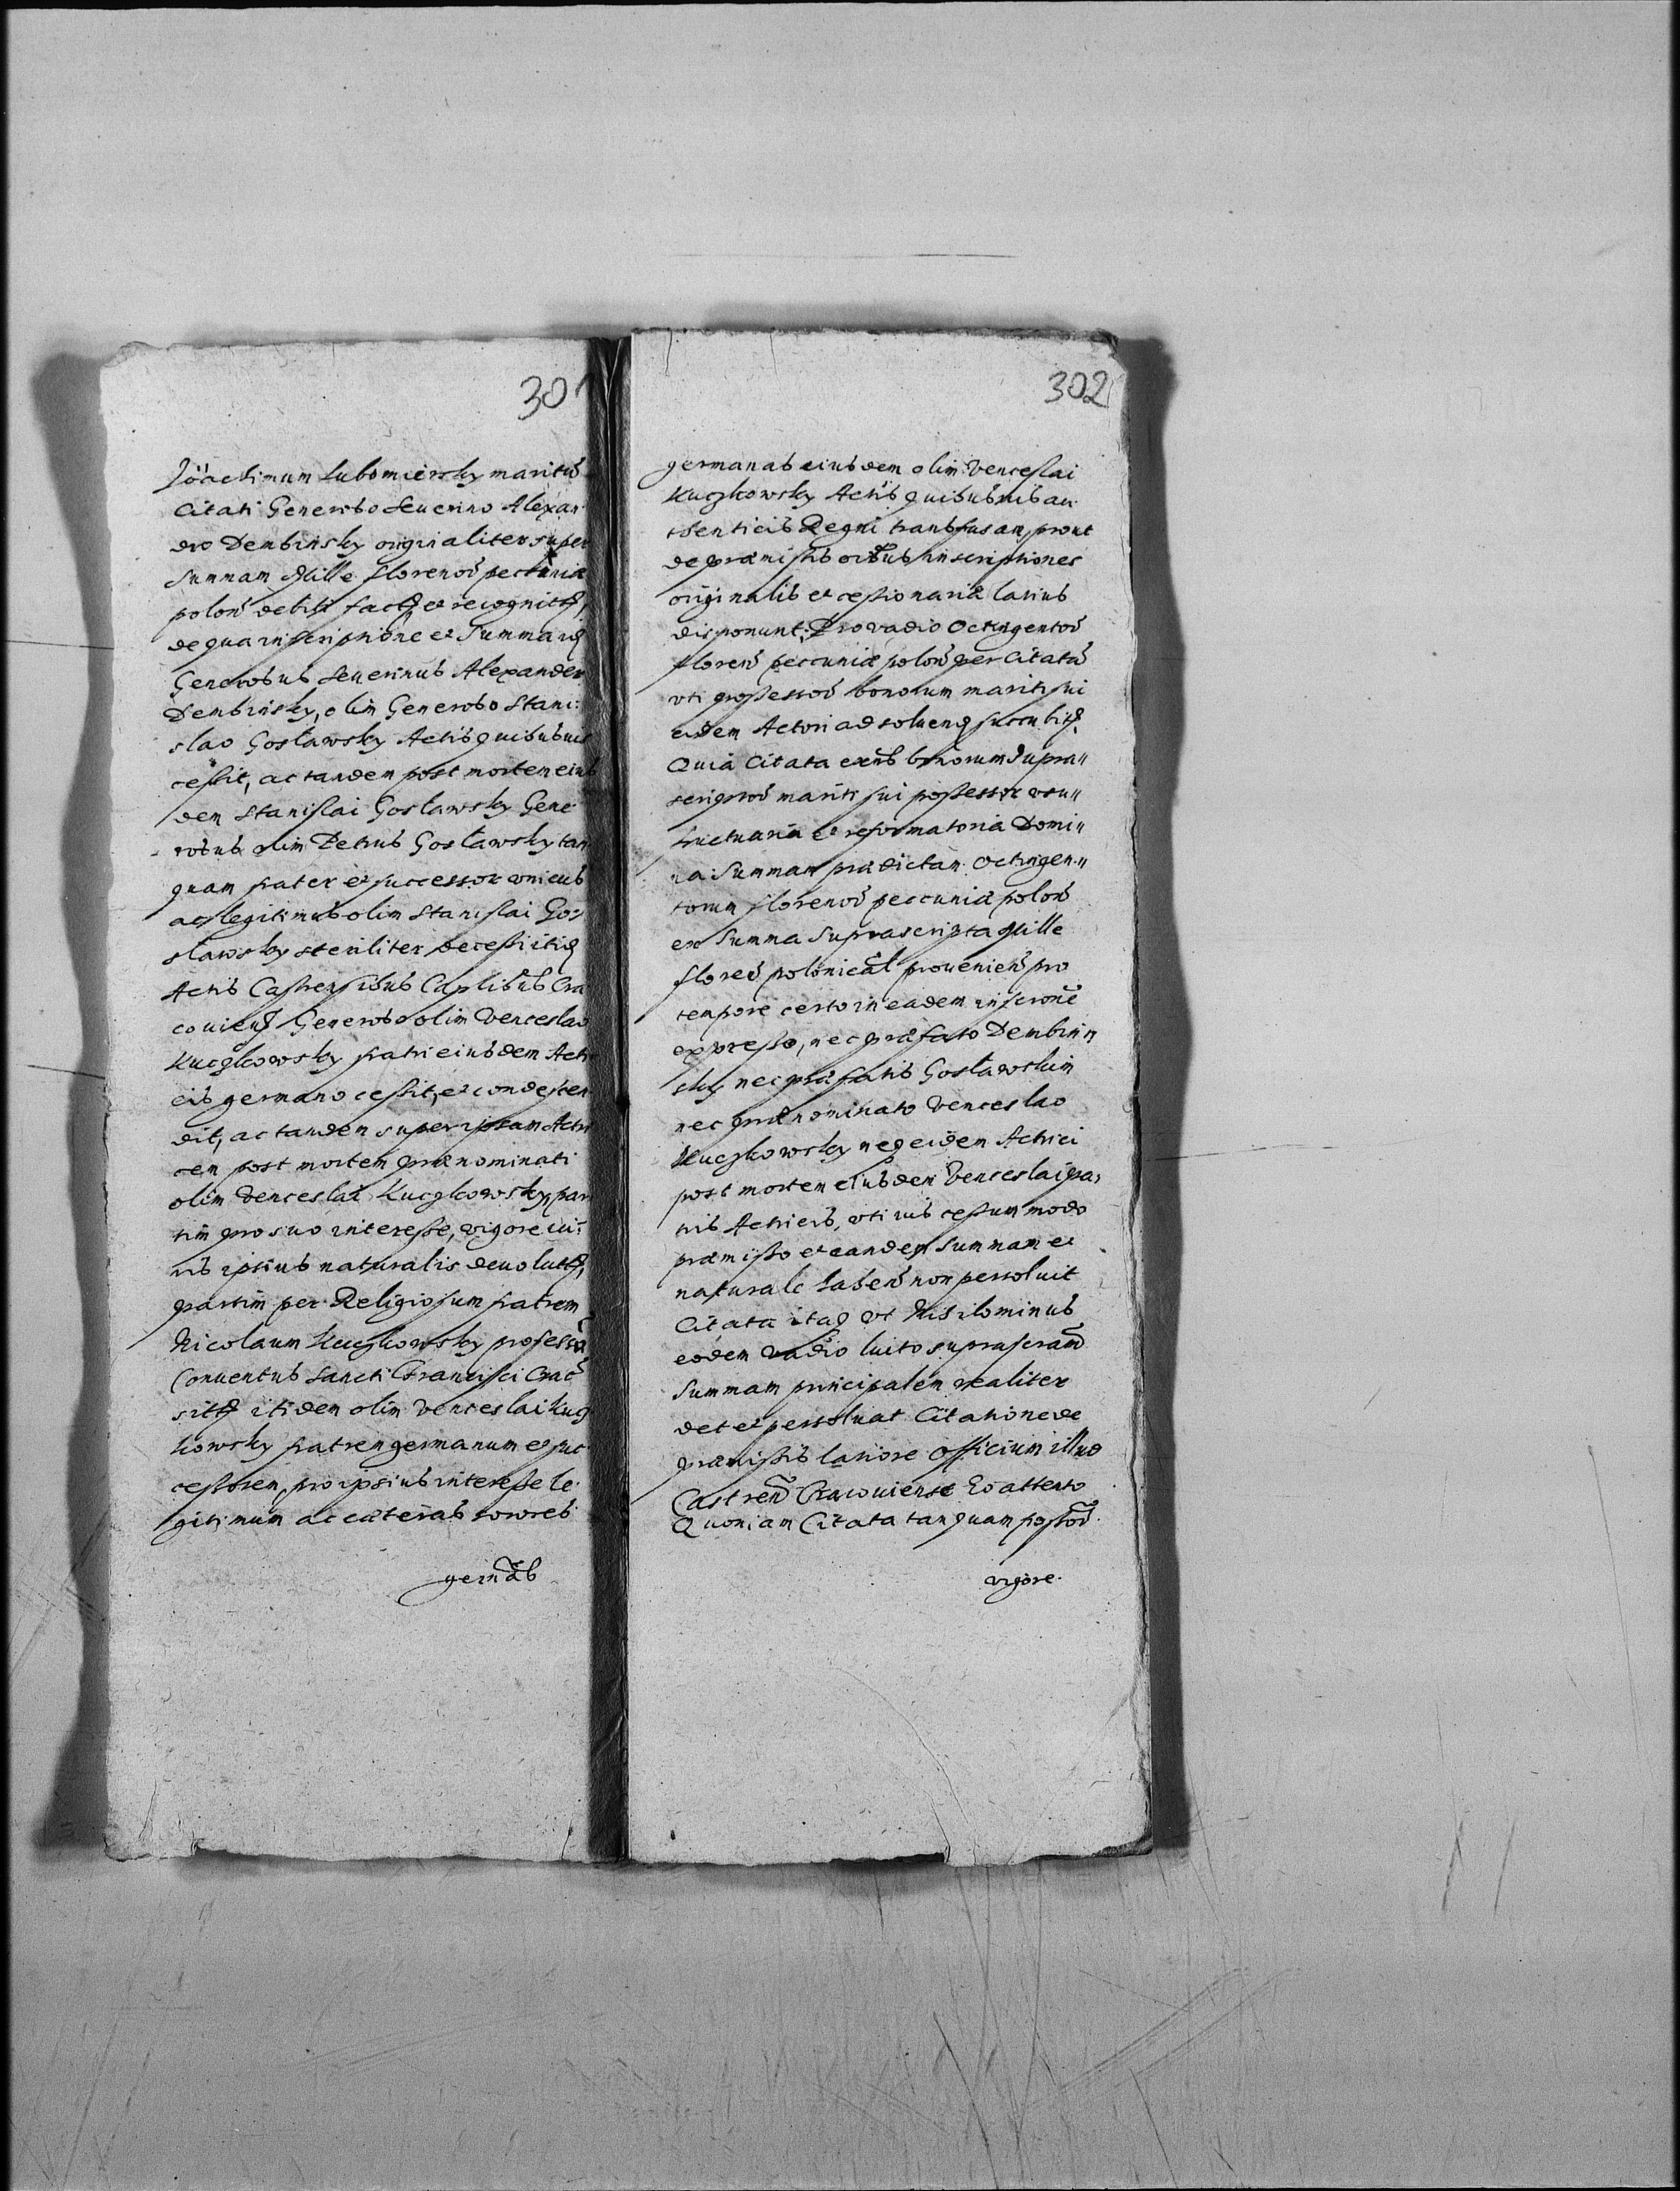 301
Joachimum Lubomiersky maritũ
Citati Generoso Seuerino Alexan
dro Dembinsky originaliter super
Summam Mille florenoȓ pecuniæ
polon̄ debiti factȩ et recognitȩ,
de qua inscriptione et Summa
Generosus Seuerinus Alexander
Dembinsky, olim Generoso Stani:
slao Gosławsky Actis quibusuis
cessit, ac tandem post mortem eius
dem Stanislai Gosławsky Gene
rosus olim Petrus Gosławsky tan
quam frater et successor vnicus
ac legitimus olim Stanislai Gos
sławsky steriliter
Actis Castrensibus Caplibus Cra
couień Generoso olim Venceslao
Kuczkowsky fratri eiusdem Actri
cis germano cessit, et condescen
dit, ac tandem super ipsam Actri
cem post mortem prænominati
olim Venceslai Kuczkowsky, par
tim pro suo interesse, vigore iu:
ris ipsius naturalis deuolutȩ,
partim per Religiosum fratrem
Nicolaum Kuczkowsky professũ
Conuentus Sancti Francisci Crac̃
itidem olim Venceslai Kucz
kowsky fratrem germanum et suc
cessorem, pro ipsius interesse le
gitimum ac cæteras sorores
germãs
302
germanas eiusdem olim Venceslai
Kuczkowsky Actis quibusuis au
thenticis Regni transfusam, prout
de præmissis oĩbus inscriptiones
originalis et cessionariæ latius
disponunt; Pro vadio Octingentoȓ
floreȓ pecuniæ polon̄ per Citatã
vti possessoȓ bonorum mariti sui
eidem Actori ad soluenȡ succubitȩ
Quia Citata exñs bonorum Supra"
scriptoȓ mariti sui possessrix vsu"
fructuaria et reformatoria Domi"
na Summam prædictam Octingen"
torum florenoȓ pecuniæ polon̄
ex Summa Suprascripta Mille
floreȓ polonicał prouenień pro
tempore certo in eadem inscriõne
expresso, nec præfato Dembin"
sky nec præfatis Gosławskim
nec prænominato Venceslao
Kuczkowsky neq eidem Actrici
post mortem eiusdem Venceslai fra,
tris Actricis, vti ius cessum modo
præmisso et eandem Summam et
naturale haben̄ non persoluit
Citata itaq vt Nihilominus
eodem vadio luito suprascrãm
Summam principalem realiter
det et persoluat Citatione de
præmissis latiore Officium illud
Castren̄ Cracouiense Eo attento
Quoniam Citata tanquam possoȓ
vigore.